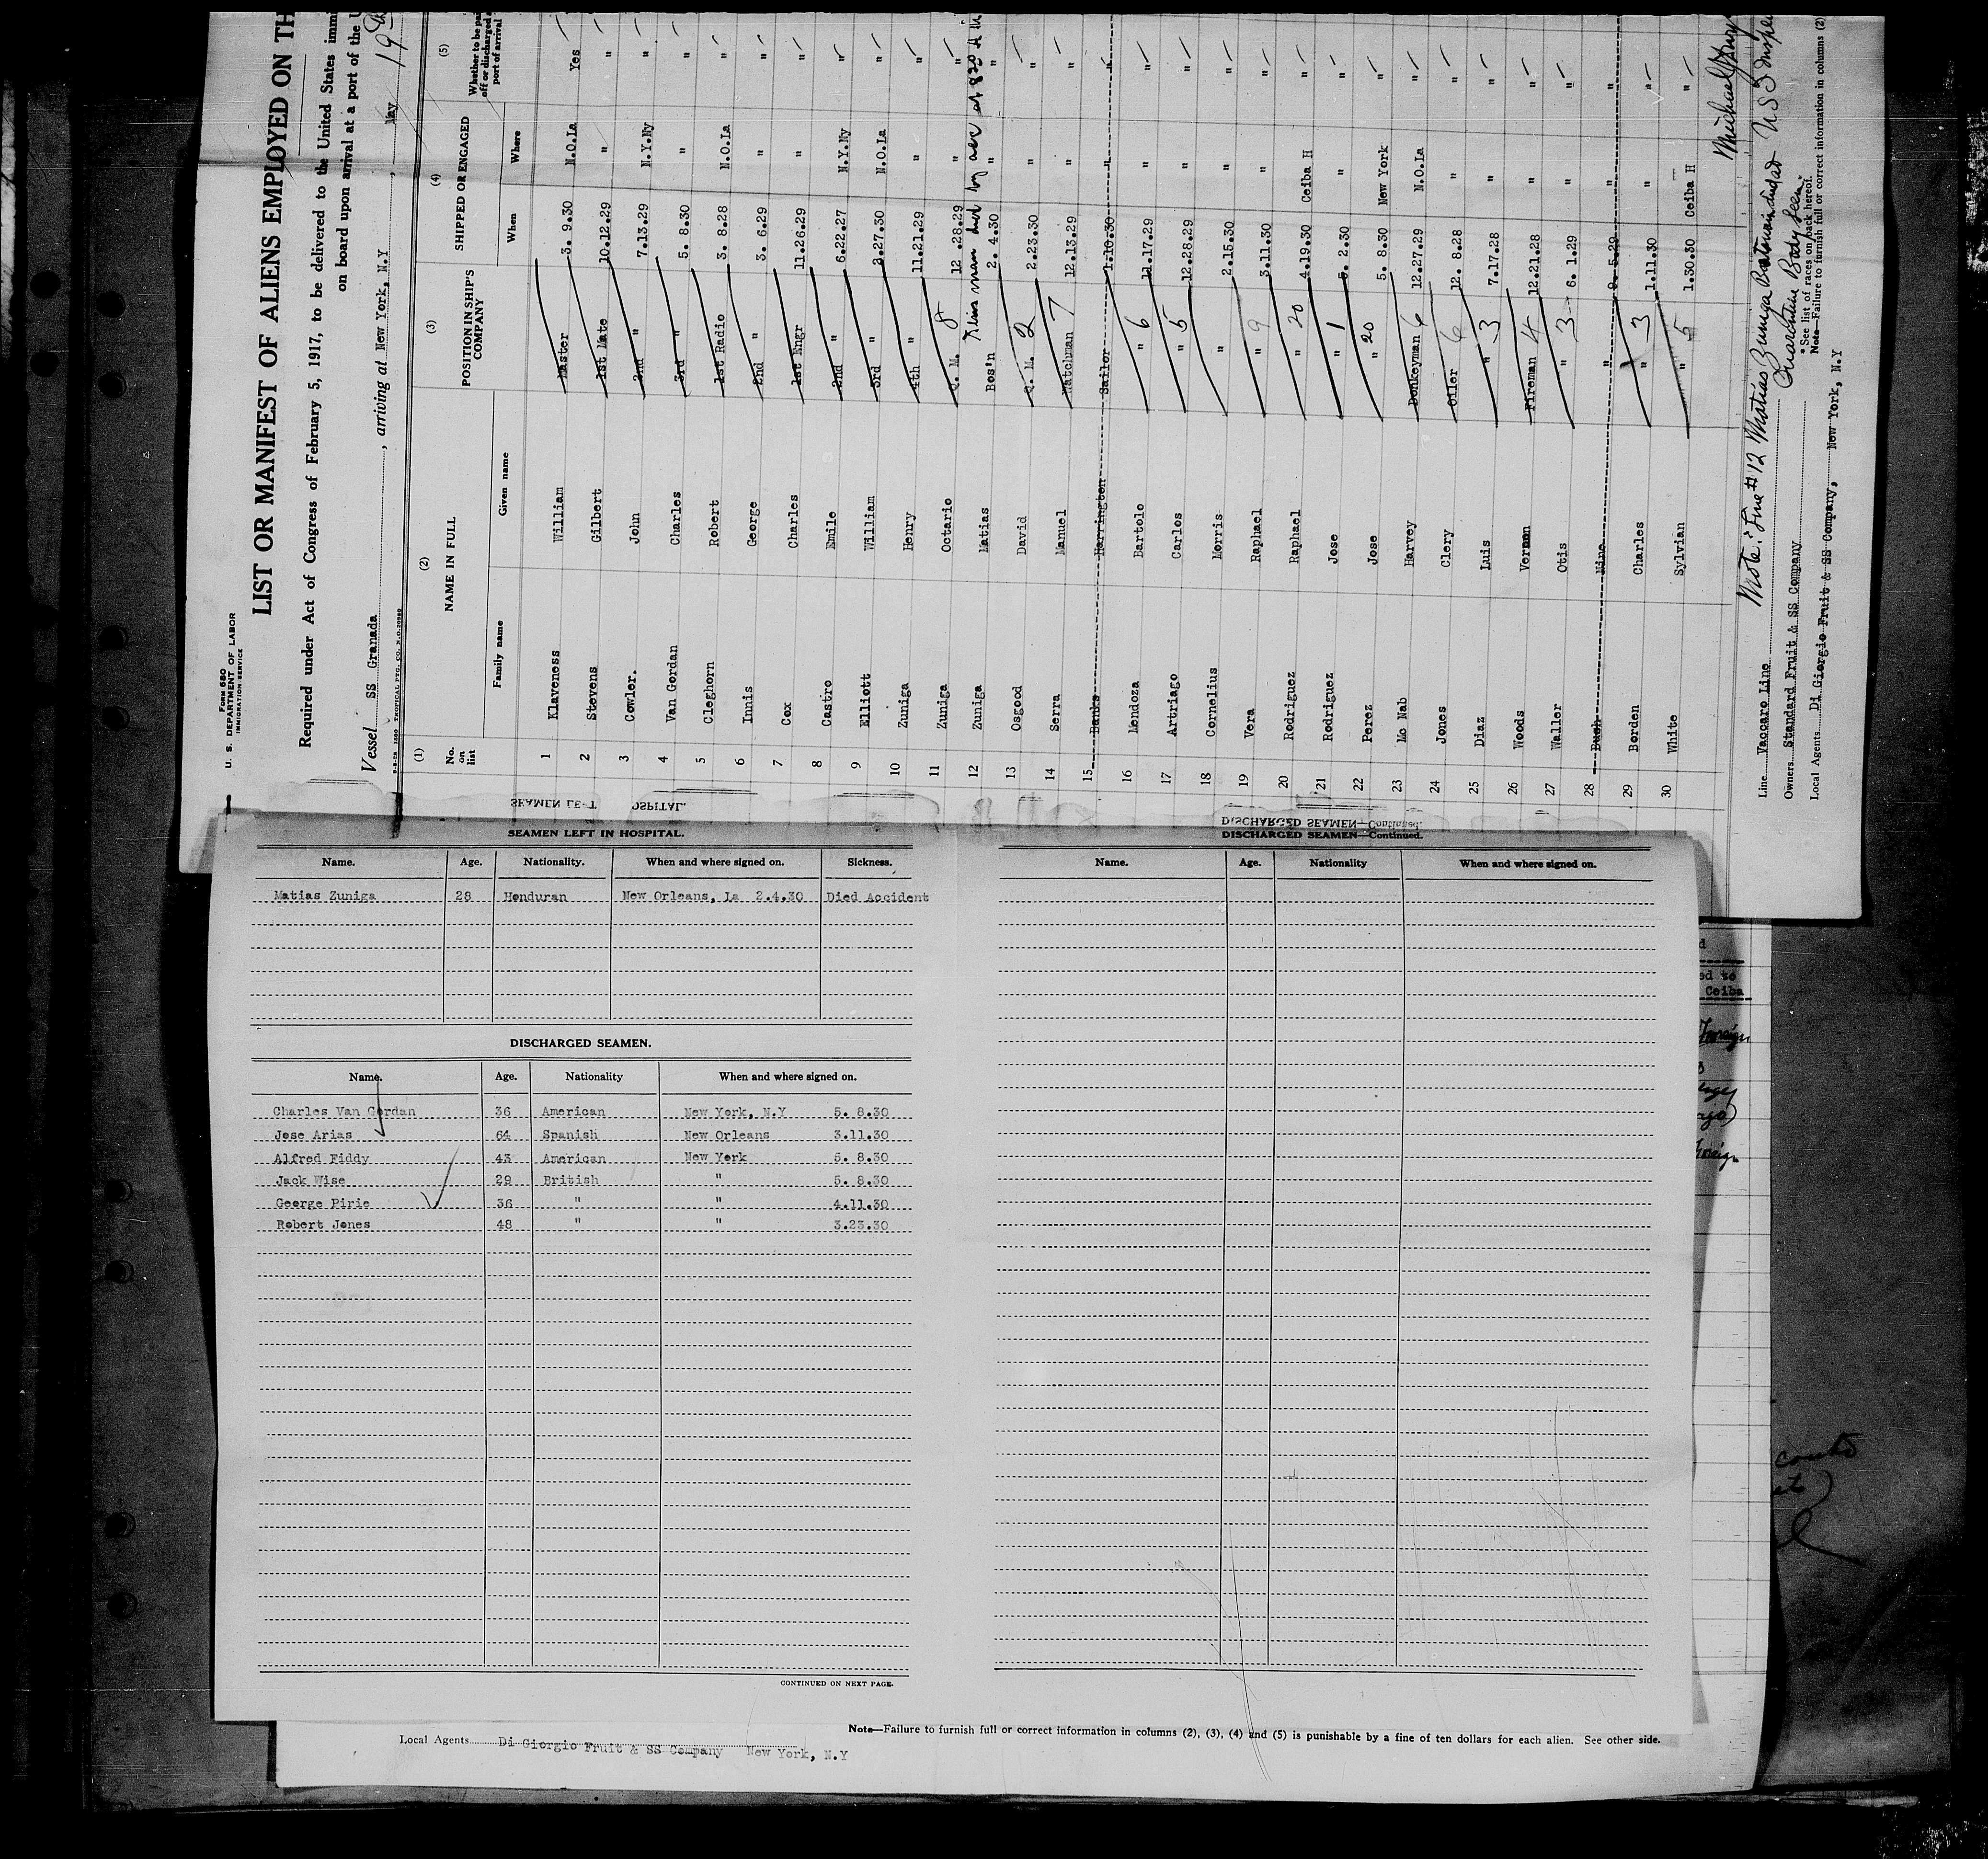 Form 680
U. S. DEPARTMENT OF LABOR
IMMIGRATION SERVICE
LIST OR MANIFEST OF ALIENS EMPLOYED ON TH
Required under Act of Congress of February 5, 1917, to be delivered to the United States immi
on board upon arrival at a port of the U
Vessel SS Granada, arriving at New York, N.Y, May 19th
(1) (2) (3) (4) (5)
No. on list NAME IN FULL POSITION IN SHIP'S COMPANY SHIPPED OR ENGAGED Whether to be pai off or discharged a port of arrival
Family name Given name When Where
1 Klaveness William Master 3. 9.30 N.O.La Yes
2 Stevens Gilbert 1st Mate 10.12.29 " "
3 Cowler. John 2nd " 7.13.29 N.Y.Ny "
4 Van Gordan Charles 3rd " 5. 8.30 " "
5 Cleghorn Robert 1st Radio 3. 8.28 N.O.La "
6 Innis George 2nd " 3. 6.29 " "
7 Cox Charles 1st Engr 11.26.29 " "
8 Castro Emile 2nd " 6.22.27 N.Y.Ny "
9 Elliott William 3rd " 2.27.30 N.O.La "
10 Zuniga Henry 4th " 11.21.29 " "
11 Zuniga Octario Q. M. 8 12 .28.29 " "
12 Zuniga Matias Bos'n 2. 4.30 " "
This man died by acc at 820 A M
13 Osgood David Q. M. 2 2.23.30 " "
14 Serra Manuel Watchman 7 12.13.29 " "
15 Banks Harrington Sailor 1.10.30 " "
16 Mendoza Bartolo " 6 12.17.29 " "
17 Artriago Carlos " 5 12.28.29 " "
18 Cornelius Morris " 2.15.30 " "
19 Vera Raphael " 9 3.11.30 " "
20 Rodriguez Raphael " 20 4.19.30 Ceiba H "
21 Rodriguez Jose " 1 5. 2.30 " "
22 Perez Jose " 20 5. 8.30 New York "
23 Mc Nab Harvey Donkeyman 6 12.27.29 N.O.La "
24 Jones Clery Oiler 6 12. 8.28 " "
25 Diaz Luis " 3 7.17.28 " "
26 Woods Vernon Fireman 4 12.21.28 " "
27 Waller Otis " 3 6. 1.29 " "
28 Bush " 9. 5.29 " "
29 Borden Charles " 3 1.11.30 " "
30 White Sylvian " 5 1.30.30 Ceiba H "
Note: Line #12 Matias Zuniga
Quarantine Body Seen.
Michael
Line Vaccaro Line
Owners Standard Fruit & SS Company
Local Agents Di Giorgio Fruit & SS Company, New York, N.Y
* See list of races on back hereof.
Note—Failure to furnish full or correct information in columns (2)
SEAMEN LEFT IN HOSPITAL.
Name. Age. Nationality. When and where signed on. Sickness.
Matias Zuniga 28 Honduran New Orleans, La 2.4.30 Died Accident
DISCHARGED SEAMEN.
Name. Age. Nationality When and where signed on.
Charles Van Gordan 36 American New York, N.Y 5. 8.30
Jose Arias 64 Spanish New Orleans 3.11.30
Alfred Fiddy 43 American New York 5. 8.30
Jack Wise 29 British " 5. 8.30
George Pirie 36 " " 4.11.30
Robert Jones 48 " " 3.23.30
CONTINUED ON NEXT PAGE.
DISCHARGED SEAMEN—Continued.
Name. Age. Nationality When and where signed on.
ed to
Ceiba
Note—Failure to furnish full or correct information in columns (2), (3), (4) and (5) is punishable by a fine of ten dollars for each alien. See other side.
Local Agents Di Giorgio Fruit & SS Company New York, N.Y